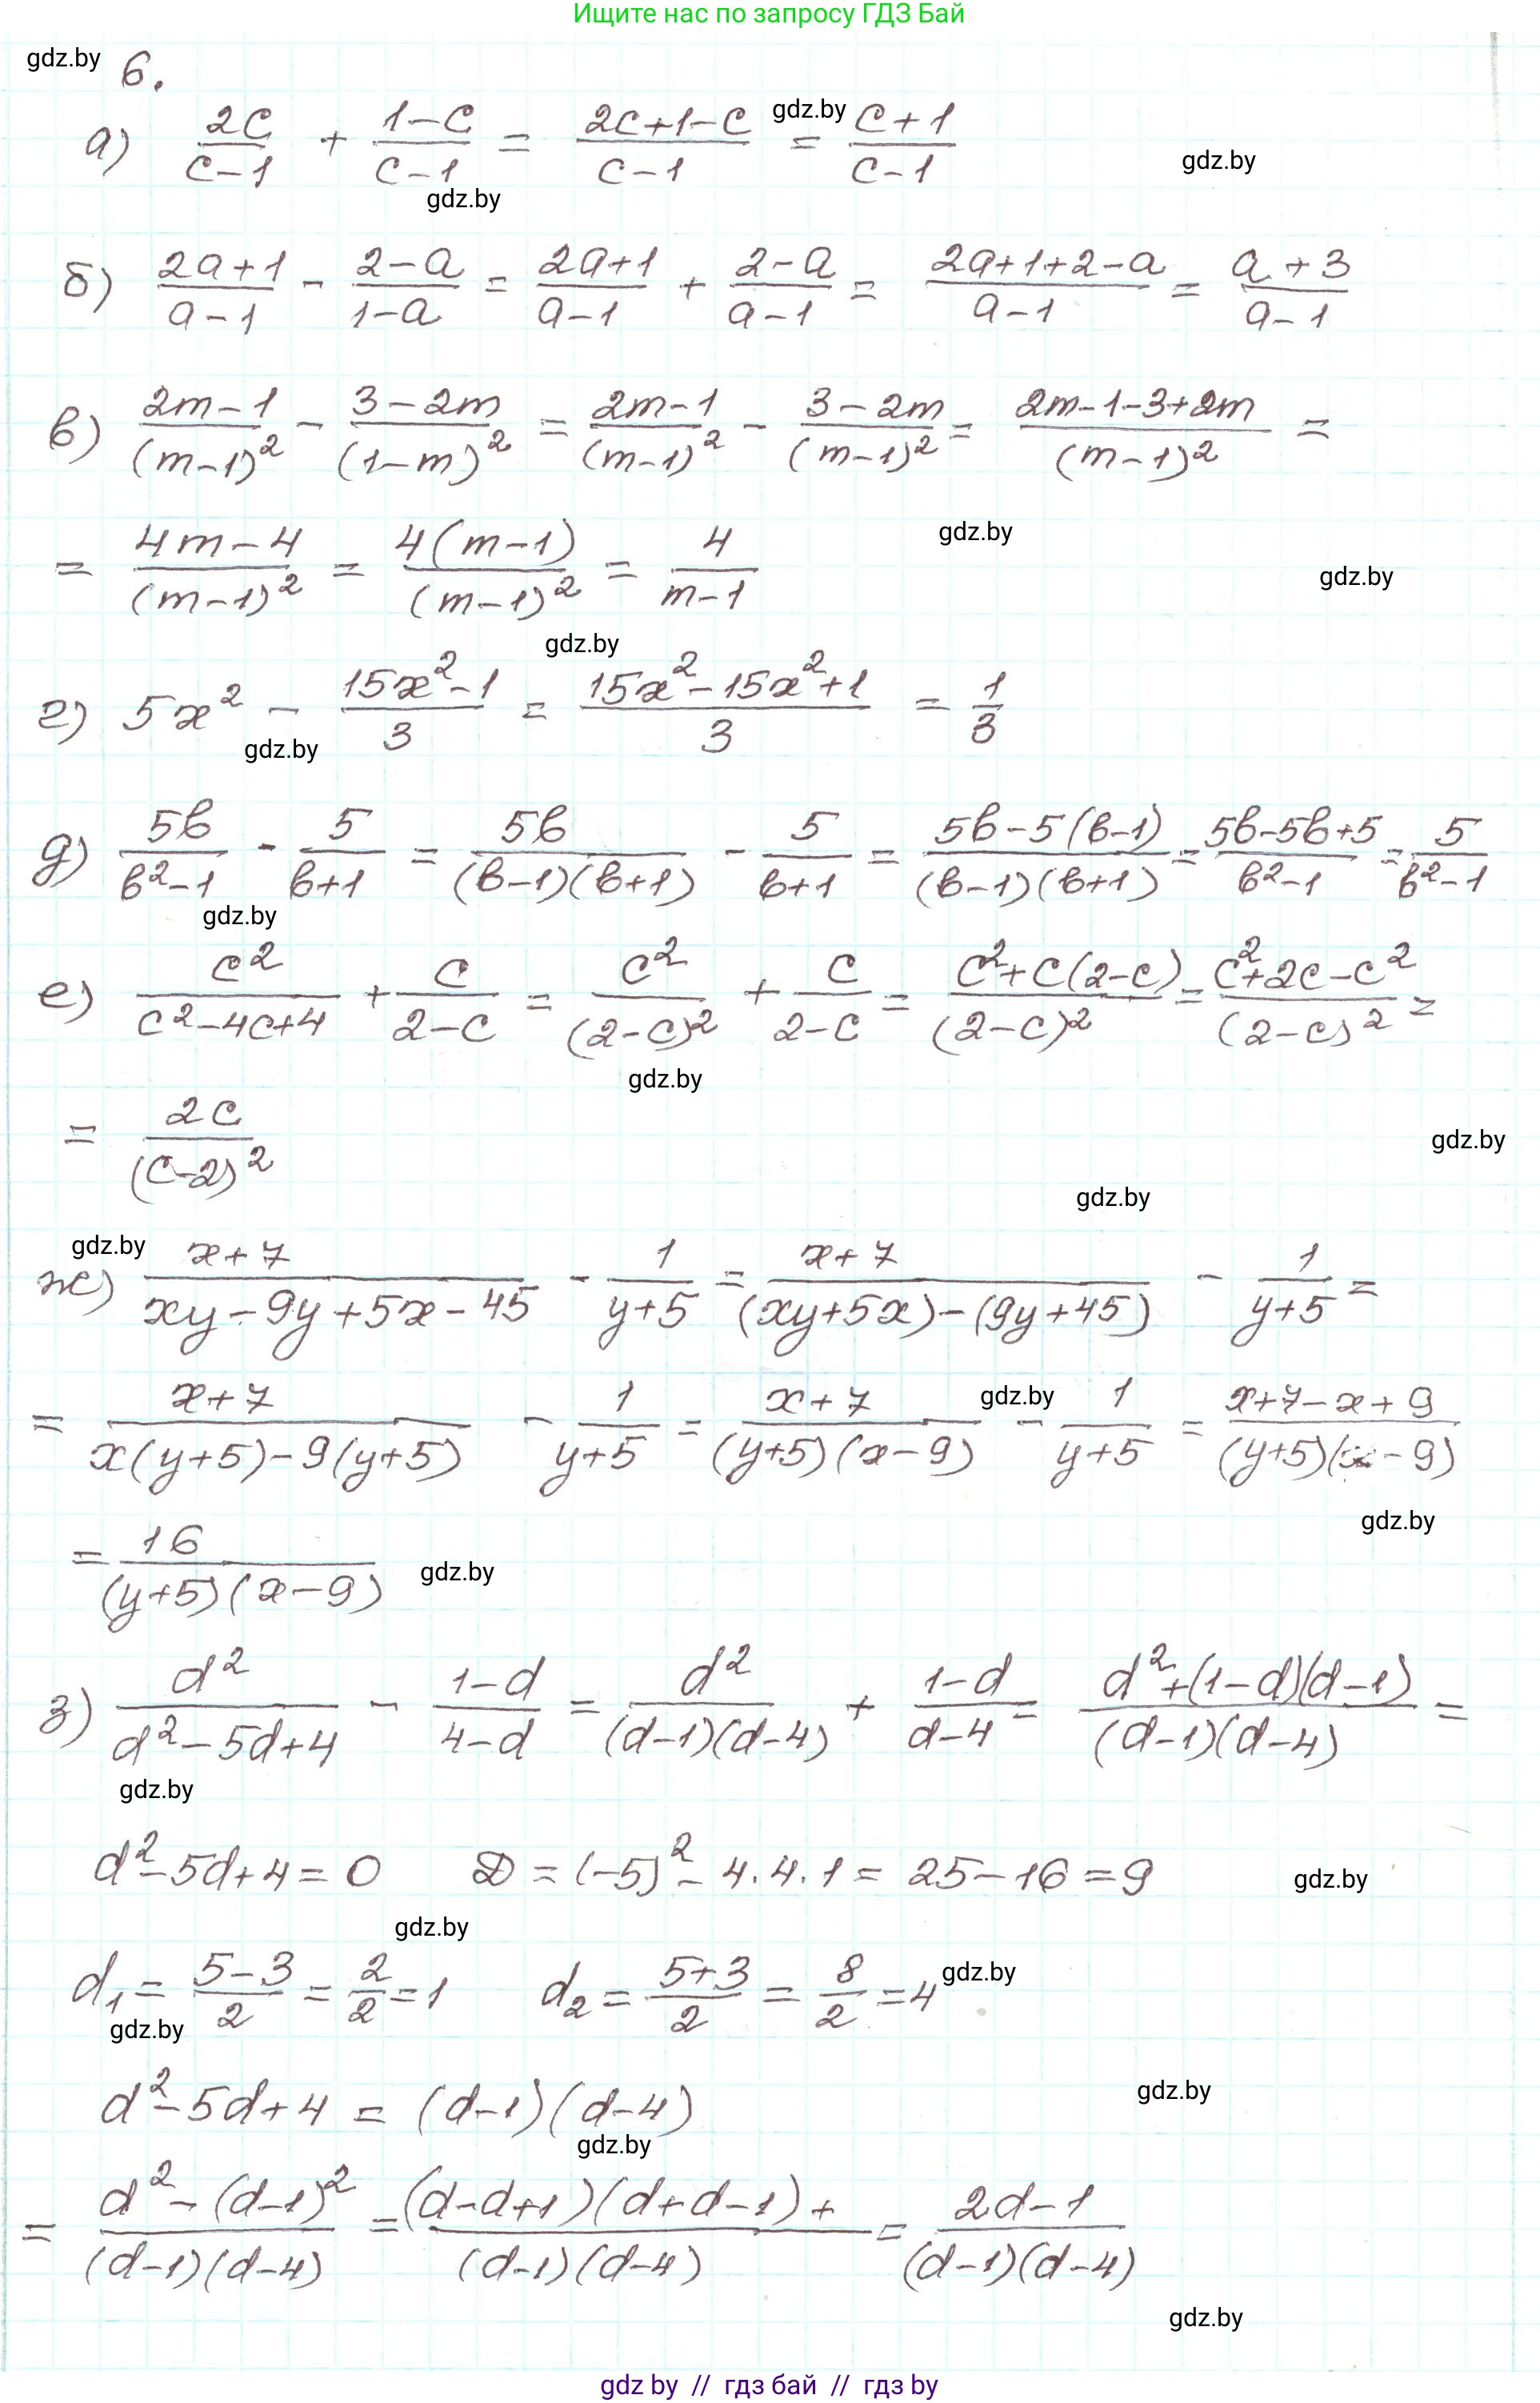 Ищите нас по запросу ГДЗ Бай
gdz.by
6.
а) 2c/(c-1) + (1-c)/(c-1) = (2c+1-c)/(c-1) gdz.by = (c+1)/(c-1)
gdz.by
gdz.by
б) (2a+1)/(a-1) - (2-a)/(1-a) = (2a+1)/(a-1) + (2-a)/(a-1) = (2a+1+2-a)/(a-1) = (a+3)/(a-1)
в) (2m-1)/(m-1)² - (3-2m)/(1-m)² = (2m-1)/(m-1)² - (3-2m)/(m-1)² = (2m-1-3+2m)/(m-1)² =
= (4m-4)/(m-1)² = 4(m-1)/(m-1)² = 4/(m-1) gdz.by
gdz.by
gdz.by
г) 5x² - (15x²-1)/3 = (15x²-15x²+1)/3 = 1/3
gdz.by
д) 5b/(b²-1) - 5/(b+1) = 5b/((b-1)(b+1)) - 5/(b+1) = (5b-5(b-1))/((b-1)(b+1)) = (5b-5b+5)/(b²-1) = 5/(b²-1)
gdz.by
е) c²/(c²-4c+4) + c/(2-c) = c²/(2-c)² + c/(2-c) = (c²+c(2-c))/(2-c)² = (c²+2c-c²)/(2-c)² =
gdz.by
= 2c/(c-2)²
gdz.by
gdz.by
gdz.by
ж) (x+7)/(xy-9y+5x-45) - 1/(y+5) = (x+7)/((xy+5x)-(9y+45)) - 1/(y+5) =
= (x+7)/(x(y+5)-9(y+5)) - 1/(y+5) = (x+7)/((y+5)(x-9)) gdz.by - 1/(y+5) = (x+7-x+9)/((y+5)(x-9))
gdz.by
= 16/((y+5)(x-9)) gdz.by
з) d²/(d²-5d+4) - (1-d)/(4-d) = d²/((d-1)(d-4)) + (1-d)/(d-4) = (d²+(1-d)(d-1))/((d-1)(d-4)) =
gdz.by
d²-5d+4=0 D=(-5)²-4·4·1=25-16=9 gdz.by
gdz.by
d₁ = (5-3)/2 = 2/2 = 1 d₂ = (5+3)/2 = 8/2 = 4 gdz.by
gdz.by
d²-5d+4 = (d-1)(d-4) gdz.by
gdz.by
= (d²-(d-1)²)/((d-1)(d-4)) = ((d-d+1)(d+d-1)+)/((d-1)(d-4)) = (2d-1)/((d-1)(d-4))
gdz.by
gdz by // гдз бай // гдз by